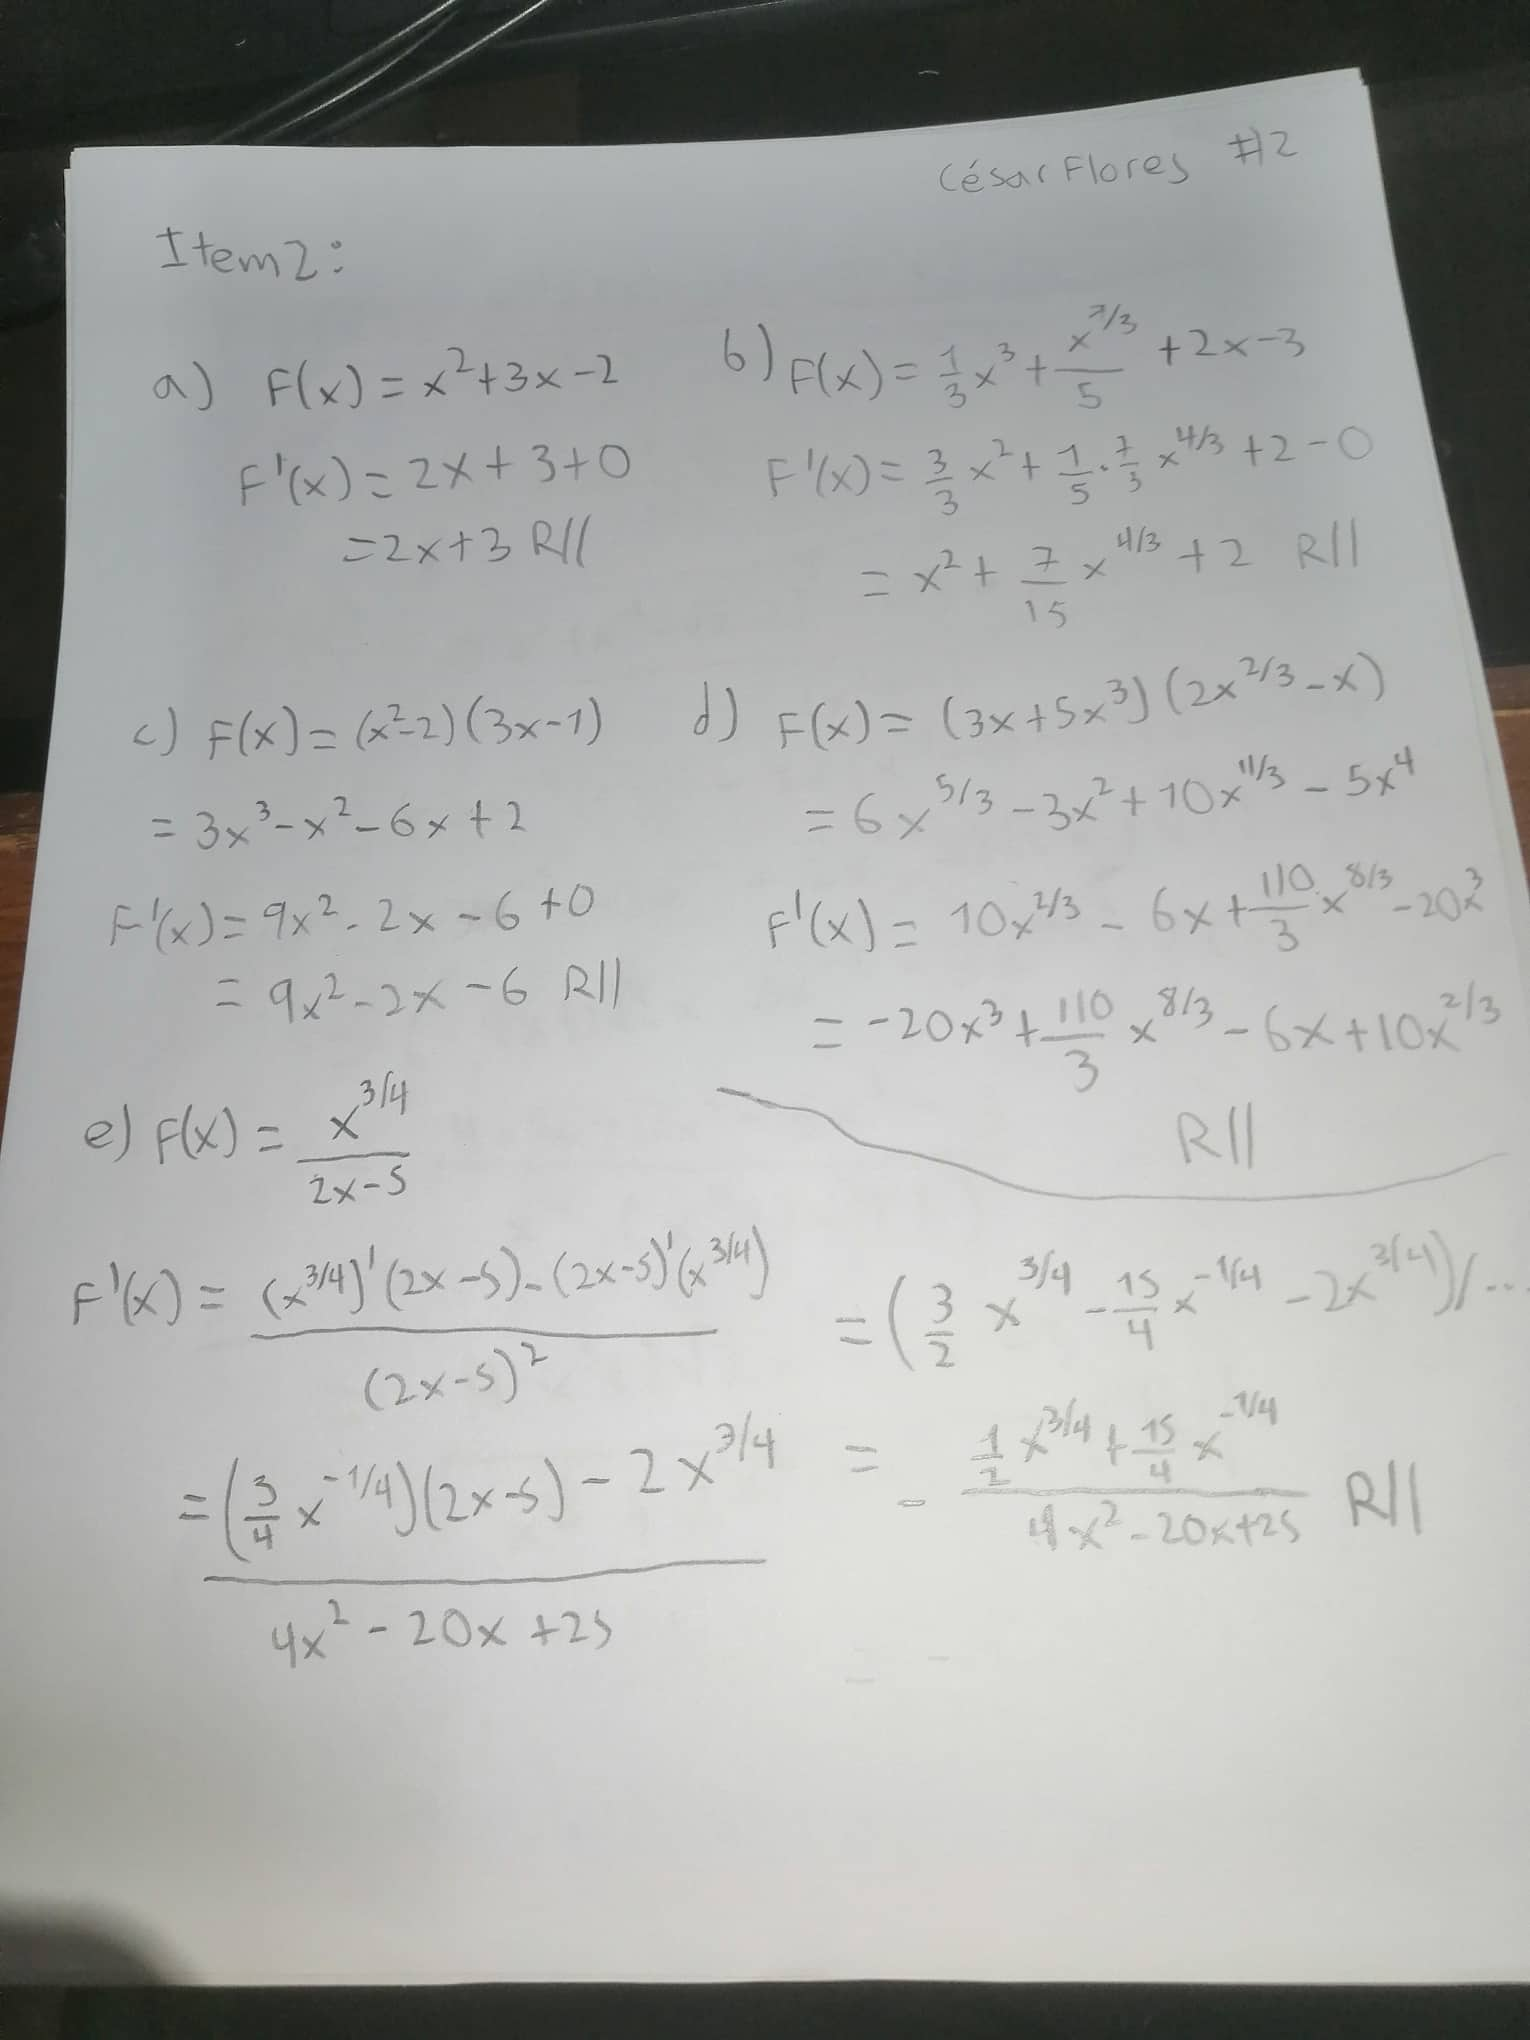 César Flores #2
Item 2:
a) F(x) = x²+3x-2
F'(x) = 2x+3+0
=2x+3 R//
b) F(x) = 1/3 x³ + x^(7/3)/5 +2x-3
F'(x) = 3/3 x² + 1/5 · 7/3 x^(4/3) +2-0
= x² + 7/15 x^(4/3) +2 R//
c) F(x) = (x²-2)(3x-1)
= 3x³-x²-6x+2
F'(x) = 9x²-2x-6+0
= 9x²-2x-6 R//
d) F(x) = (3x+5x³)(2x^(2/3)-x)
= 6x^(5/3) -3x²+10x^(11/3) -5x⁴
F'(x) = 10x^(2/3) - 6x + 110/3 x^(8/3) -20x³
= -20x³ + 110/3 x^(8/3) -6x+10x^(2/3)
R//
e) F(x) = x^(3/4)/(2x-5)
F'(x) = ((x^(3/4))'(2x-5)-(2x-5)'(x^(3/4)))/(2x-5)²
= ((3/4 x^(-1/4))(2x-5) - 2x^(3/4))/(4x²-20x+25)
= (3/2 x^(3/4) - 15/4 x^(-1/4) -2x^(3/4))/...
= - (1/2 x^(3/4) + 15/4 x^(-1/4))/(4x²-20x+25) R//